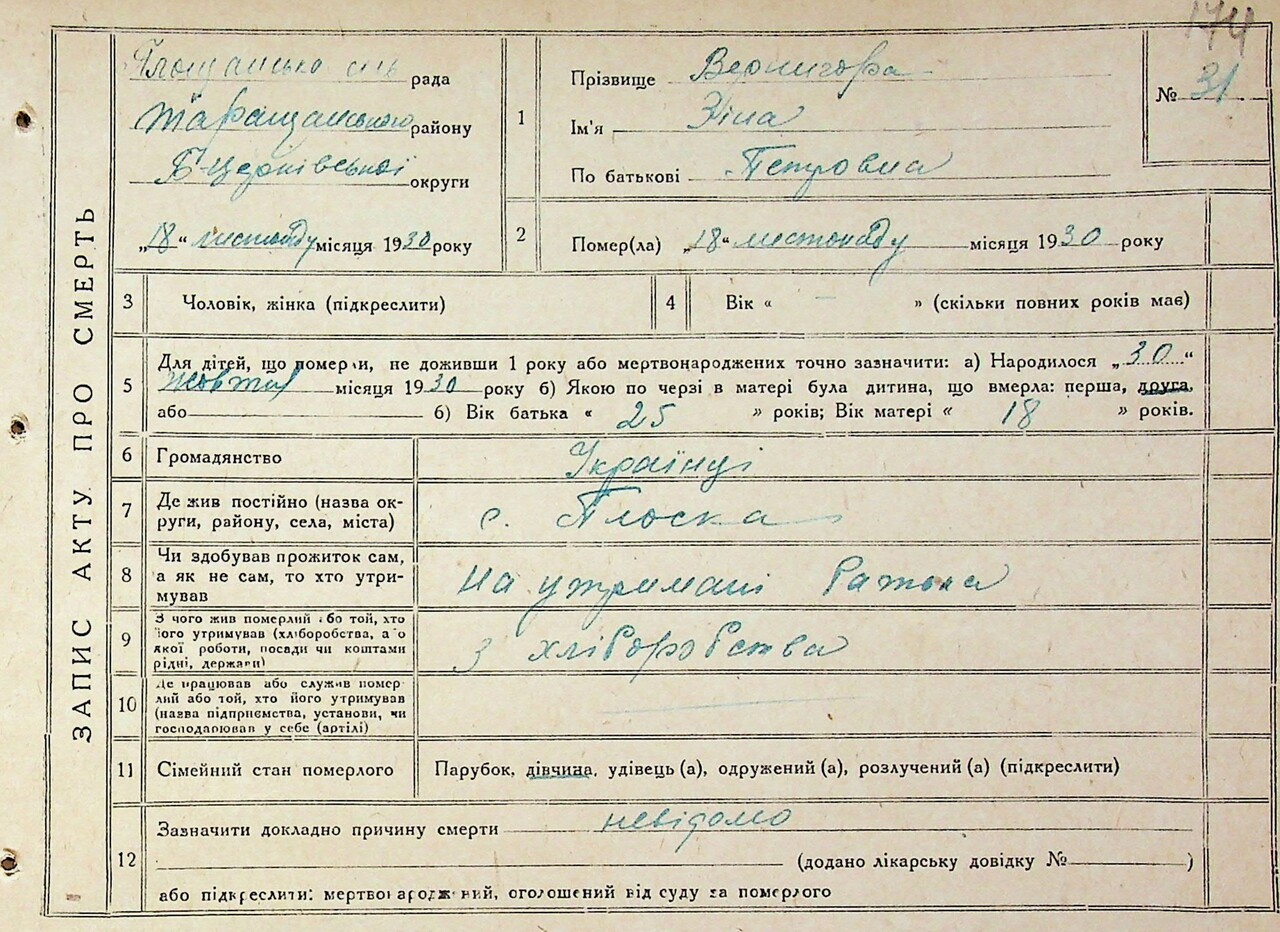 174
ЗАПИС АКТУ ПРО СМЕРТЬ
рада
Таращанського району
Б-Церківської округи
„18“ листопаду місяця 1930 року
1
Прізвище Вернигора
Ім'я Зіна
По батькові Петровна
№ 31
2
Помер(ла) „18“ листопаду місяця 1930 року
3 Чоловік, жінка (підкреслити)
4 Вік « – » (скільки повних років має)
5
Для дітей, що померли, не доживши 1 року або мертвонароджених точно зазначити: а) Народилося „30“
жовтня місяця 1930 року б) Якою по черзі в матері була дитина, що вмерла: перша, друга,
або б) Вік батька « 25 » років; Вік матері « 18 » років.
6 Громадянство Українці
7 Де жив постійно (назва ок-
руги, району, села, міста) с. Плоска
8 Чи здобував прожиток сам,
а як не сам, то хто утри-
мував на утримані батька
9 З чого жив померлий або той, хто
його утримував (хліборобства, або
якої роботи, посади чи коштами
рідні, держави) з хліборобства
10 Де працював або служив помер-
лий або той, хто його утримував
(назва підприємства, установи, чи
господарював у себе (артілі)
11 Сімейний стан померлого Парубок, дівчина, удівець (а), одружений (а), розлучений (а) (підкреслити)
12
Зазначити докладно причину смерти невідомо
(додано лікарську довідку № )
або підкреслити: мертвонароджений, оголошений від суду за померлого